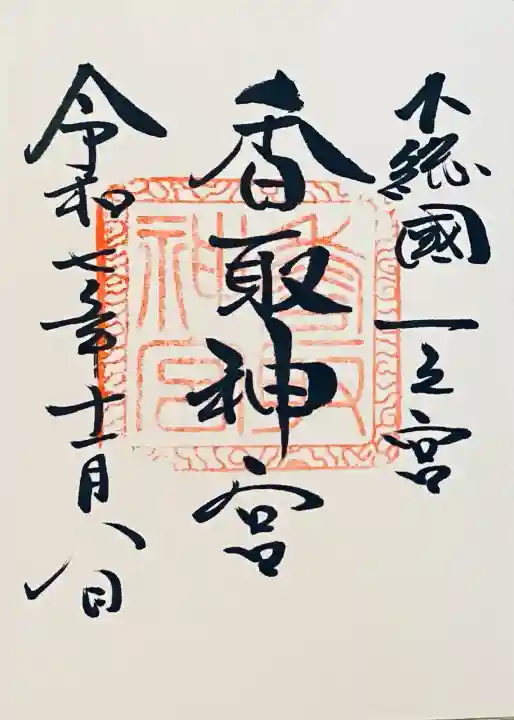 下総國一之宮
香取神宮
香取神宮
令和七年十一月八日